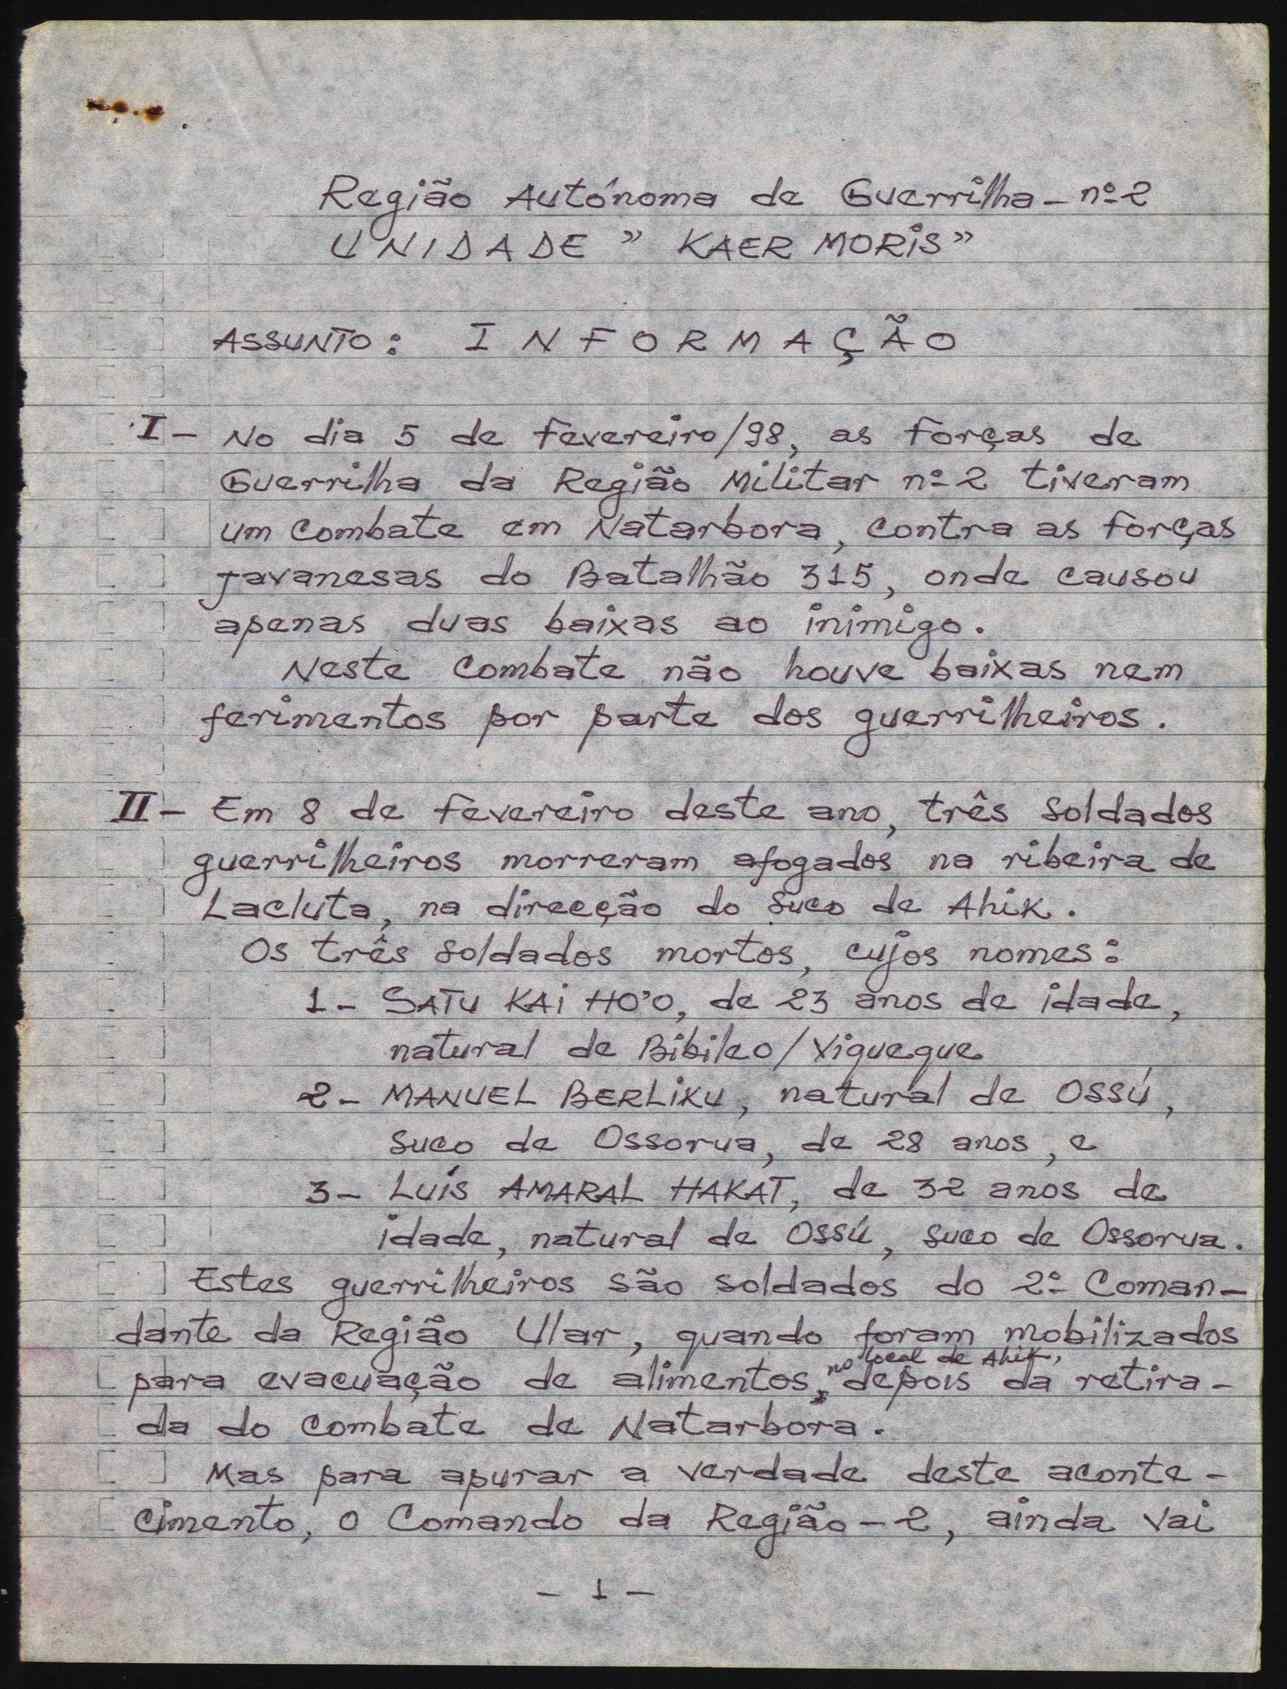 Região Autónoma de Guerrilha - nº 2
UNIDADE " KAER MORIS"
ASSUNTO: INFORMAÇÃO
I - No dia 5 de Fevereiro/98, as Forças de
Guerrilha da Região Militar nº 2 tiveram
um combate em Natarbora, contra as forças
javanesas do Batalhão 315, onde causou
apenas duas baixas ao inimigo.
Neste combate não houve baixas nem
ferimentos por parte dos guerrilheiros.
II - Em 8 de Fevereiro deste ano, três soldados
guerrilheiros morreram afogados na ribeira de
Lacluta, na direcção do suco de Ahik.
Os três soldados mortos, cujos nomes:
1 - SATU KAI HO'O, de 23 anos de idade,
natural de Bibileo/Viqueque
2 - MANUEL BERLIKU, natural de OSSÚ,
suco de Ossorua, de 28 anos, e
3 - LUÍS AMARAL HAKAT, de 32 anos de
idade, natural de OSSÚ, suco de Ossorua.
Estes guerrilheiros são soldados do 2º Coman-
dante da Região Ular, quando foram mobilizados
no local de Ahik,
para evacuação de alimentos, depois da retira-
da do combate de Natarbora.
Mas para apurar a verdade deste aconte-
cimento, o Comando da Região - 2, ainda vai
- 1 -